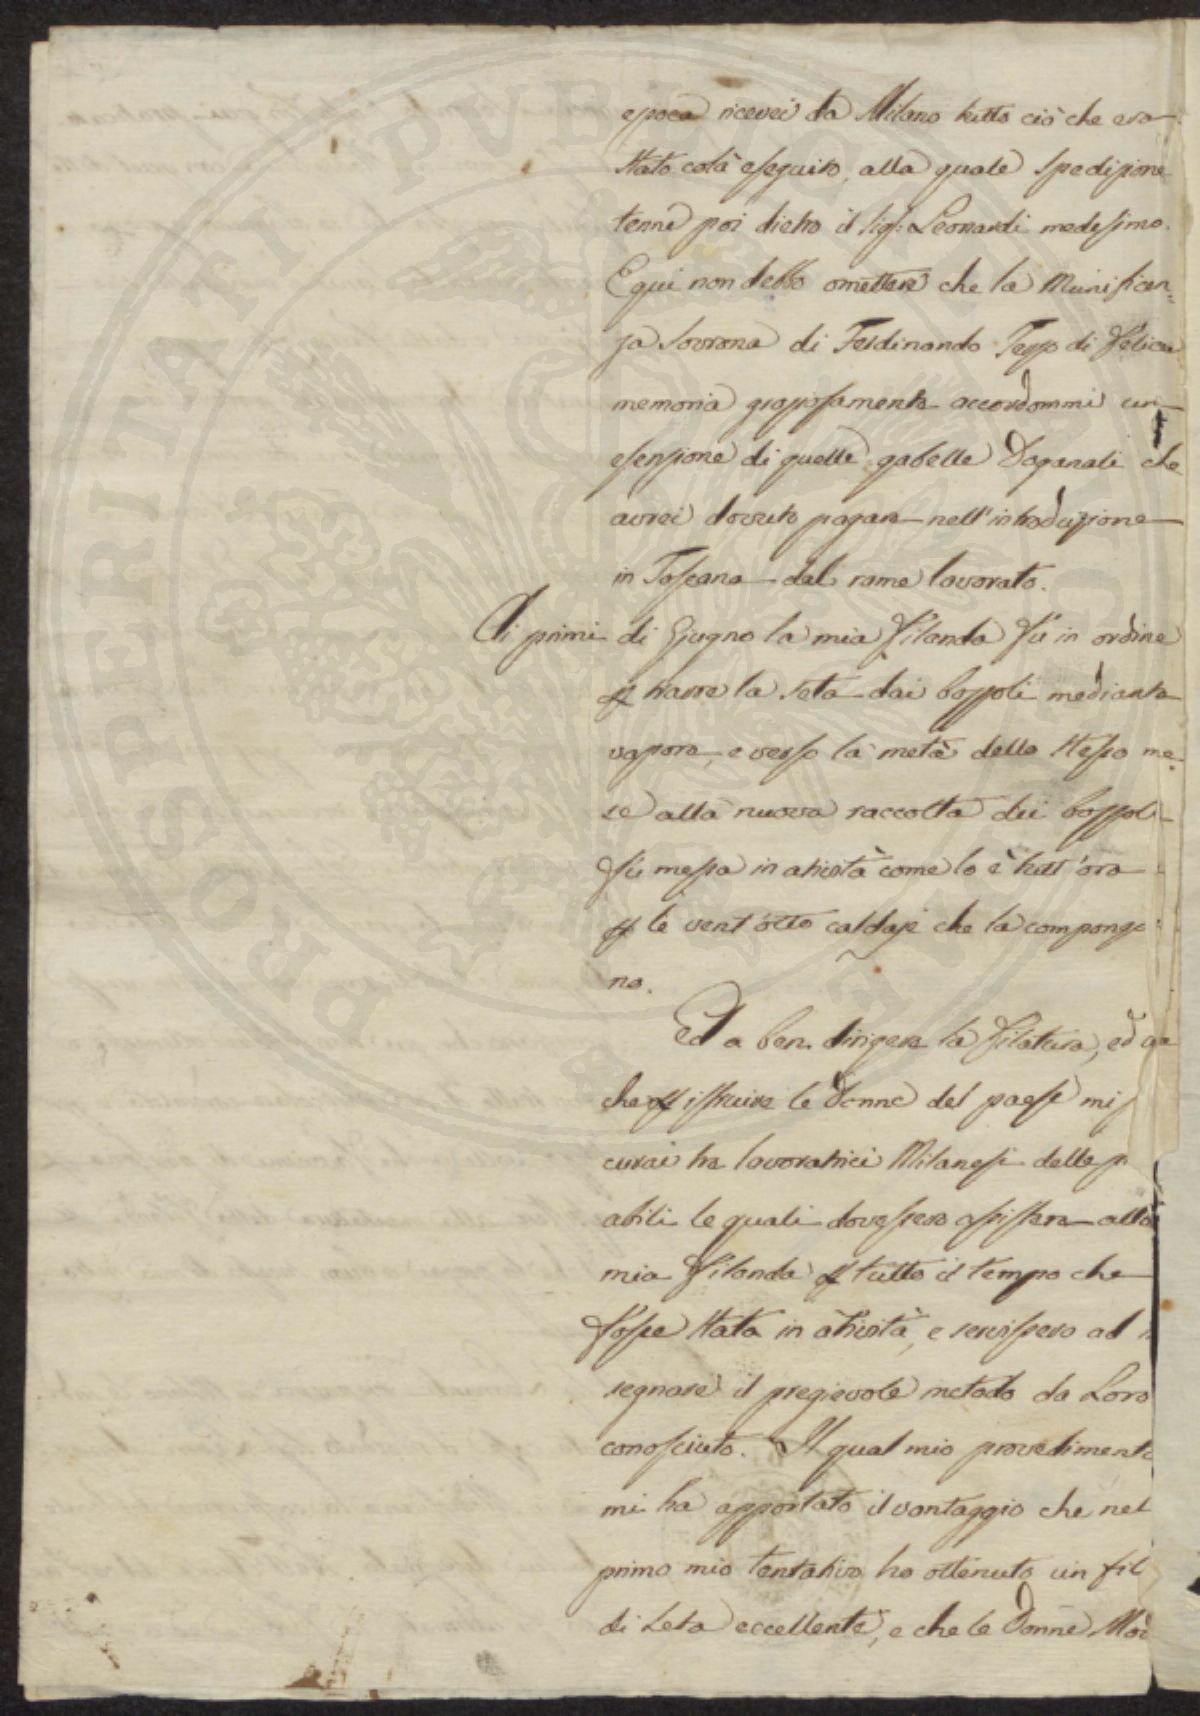 epoca ricevei da Milano tutto ciò che era
stato colà eseguito, alla quale spedizione
tenne poi dietro il Sig: Leonardi medesimo.
E qui non debbo omettere che la Munificen=
za Sovrana di Ferdinando Terzo di Felice
memoria graziosamente accordommi un
esenzione di quelle gabelle Doganali che
avrei dovuto pagare nell'introduzione
in Toscana del rame lavorato.
Ai primi di Giugno la mia Filanda fù in ordine
p trarre la seta dai bozzoli mediante
vapore, e verso la metà dello stesso me=
se alla nuova raccolta dei bozzoli
fù messa in attività come lo è tutt'ora
p le vent'otto caldaje che la compongo
no.
Ed a ben dirigere la filatura, ed an
che p istruire le Donne del paese mi
curai tre lavoratrici Milanesi delle
abili le quali dovessero assistere alla
mia Filanda p tutto il tempo che
fosse stata in attività, e servissero ad
segnare il pregievole metodo da Loro
conosciuto. Il qual mio provedimento
mi ha apportato il vantaggio che nel
primo mio tentativo ho ottenuto un fil
di Seta eccellente, e che le Donne Mod
PROSPERITATI PVBLICAE